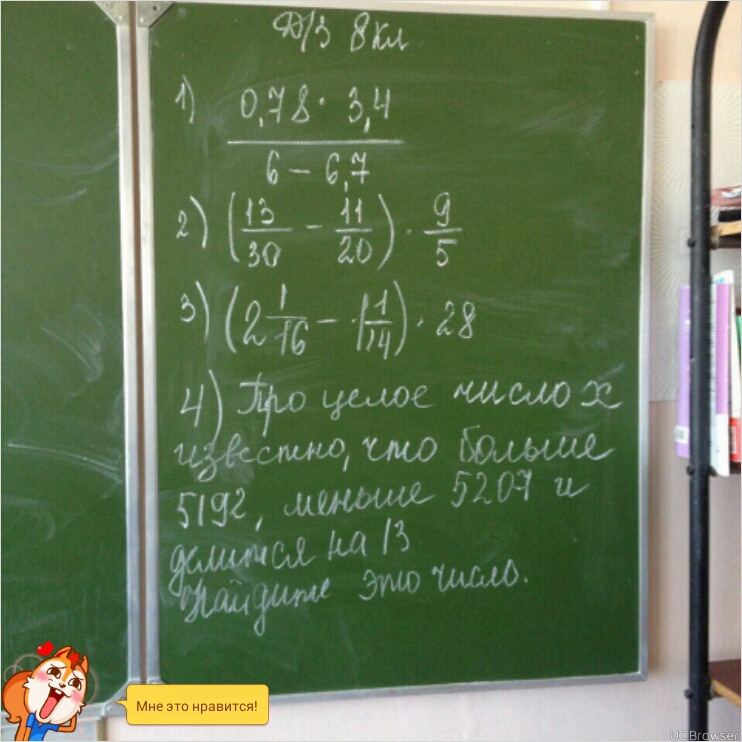 Д/З 8 кл
1) 0,78 · 3,4
6 – 6,7
2) (13/30 – 11/20) · 9/5
3) (2 1/16 – 1 1/14) · 28
4) Про целое число х
известно, что больше
5192, меньше 5207 и
делится на 13
Найдите это число.
Мне это нравится!
UC Browser